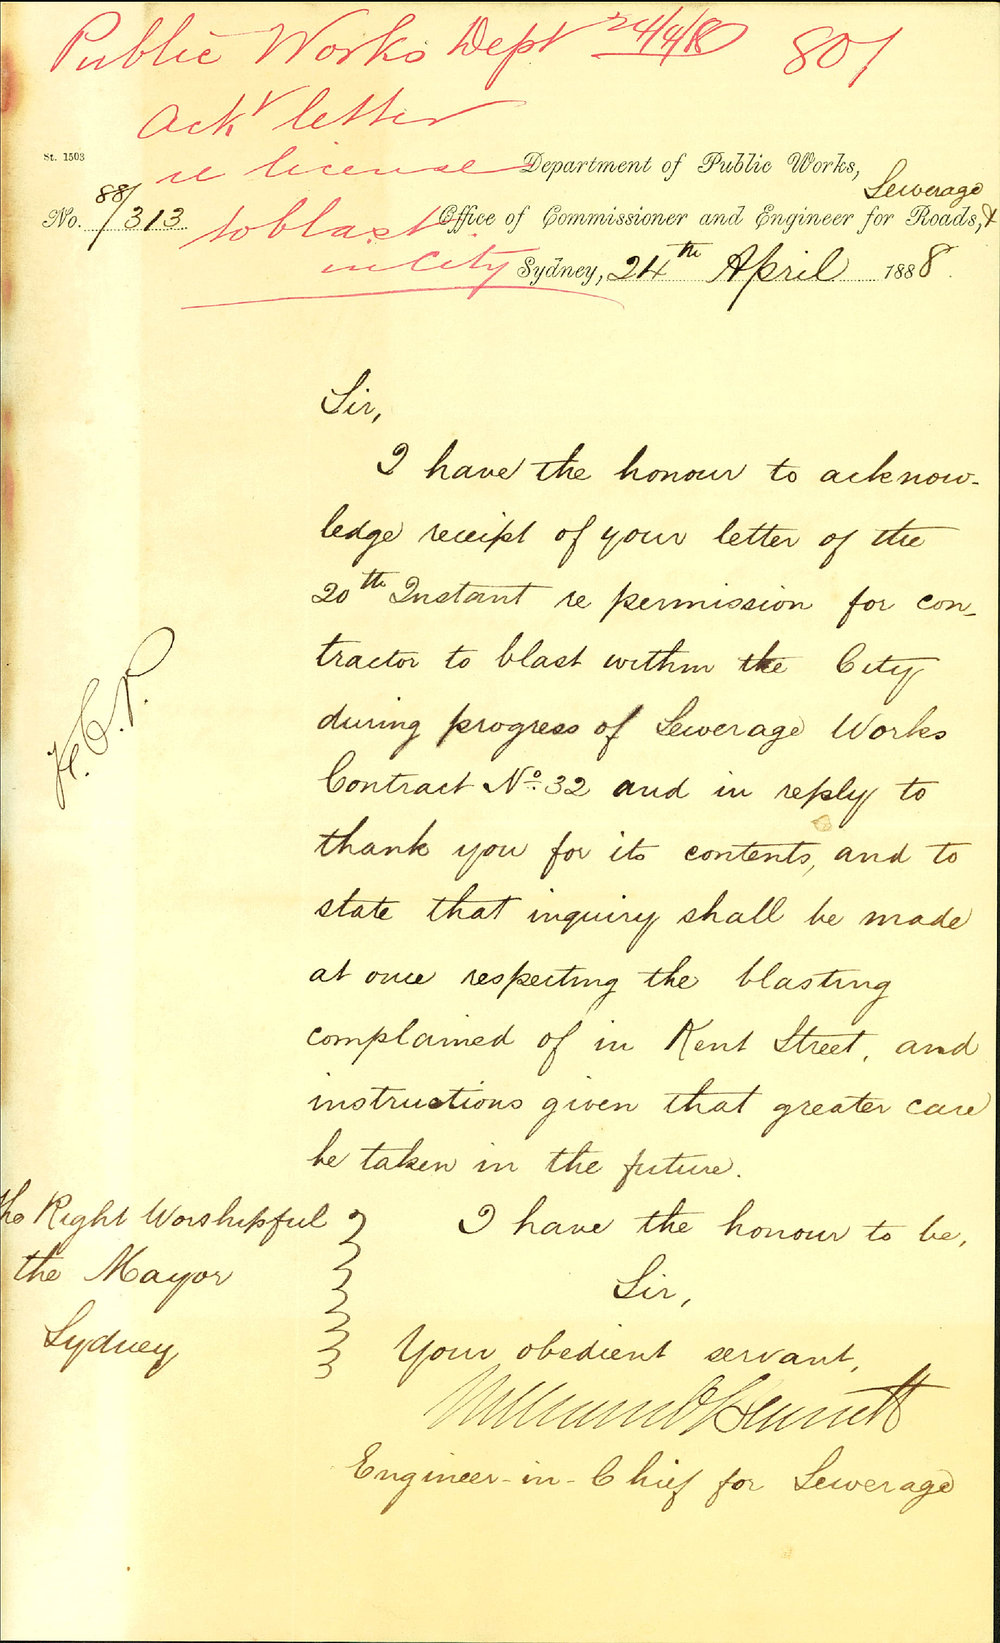 Public Works Dept 24/4/88 801
Ackt letter
re license
to blast
in City
St. 1503
No. 88/313
Department of Public Works,
Sewerage
Office of Commissioner and Engineer for Roads, &
Sydney, 24th April 1888.
Sir,
I have the honour to acknow-
ledge receipt of your letter of the
20th Instant re permission for con-
tractor to blast within the City
during progress of Sewerage Works
Contract No. 32 and in reply to
thank you for its contents, and to
state that inquiry shall be made
at once respecting the blasting
complained of in Kent Street, and
instructions given that greater care
be taken in the future.
I have the honour to be,
Sir,
Your obedient servant,
William Bennett
Engineer-in-Chief for Sewerage
The Right Worshipful
the Mayor
Sydney